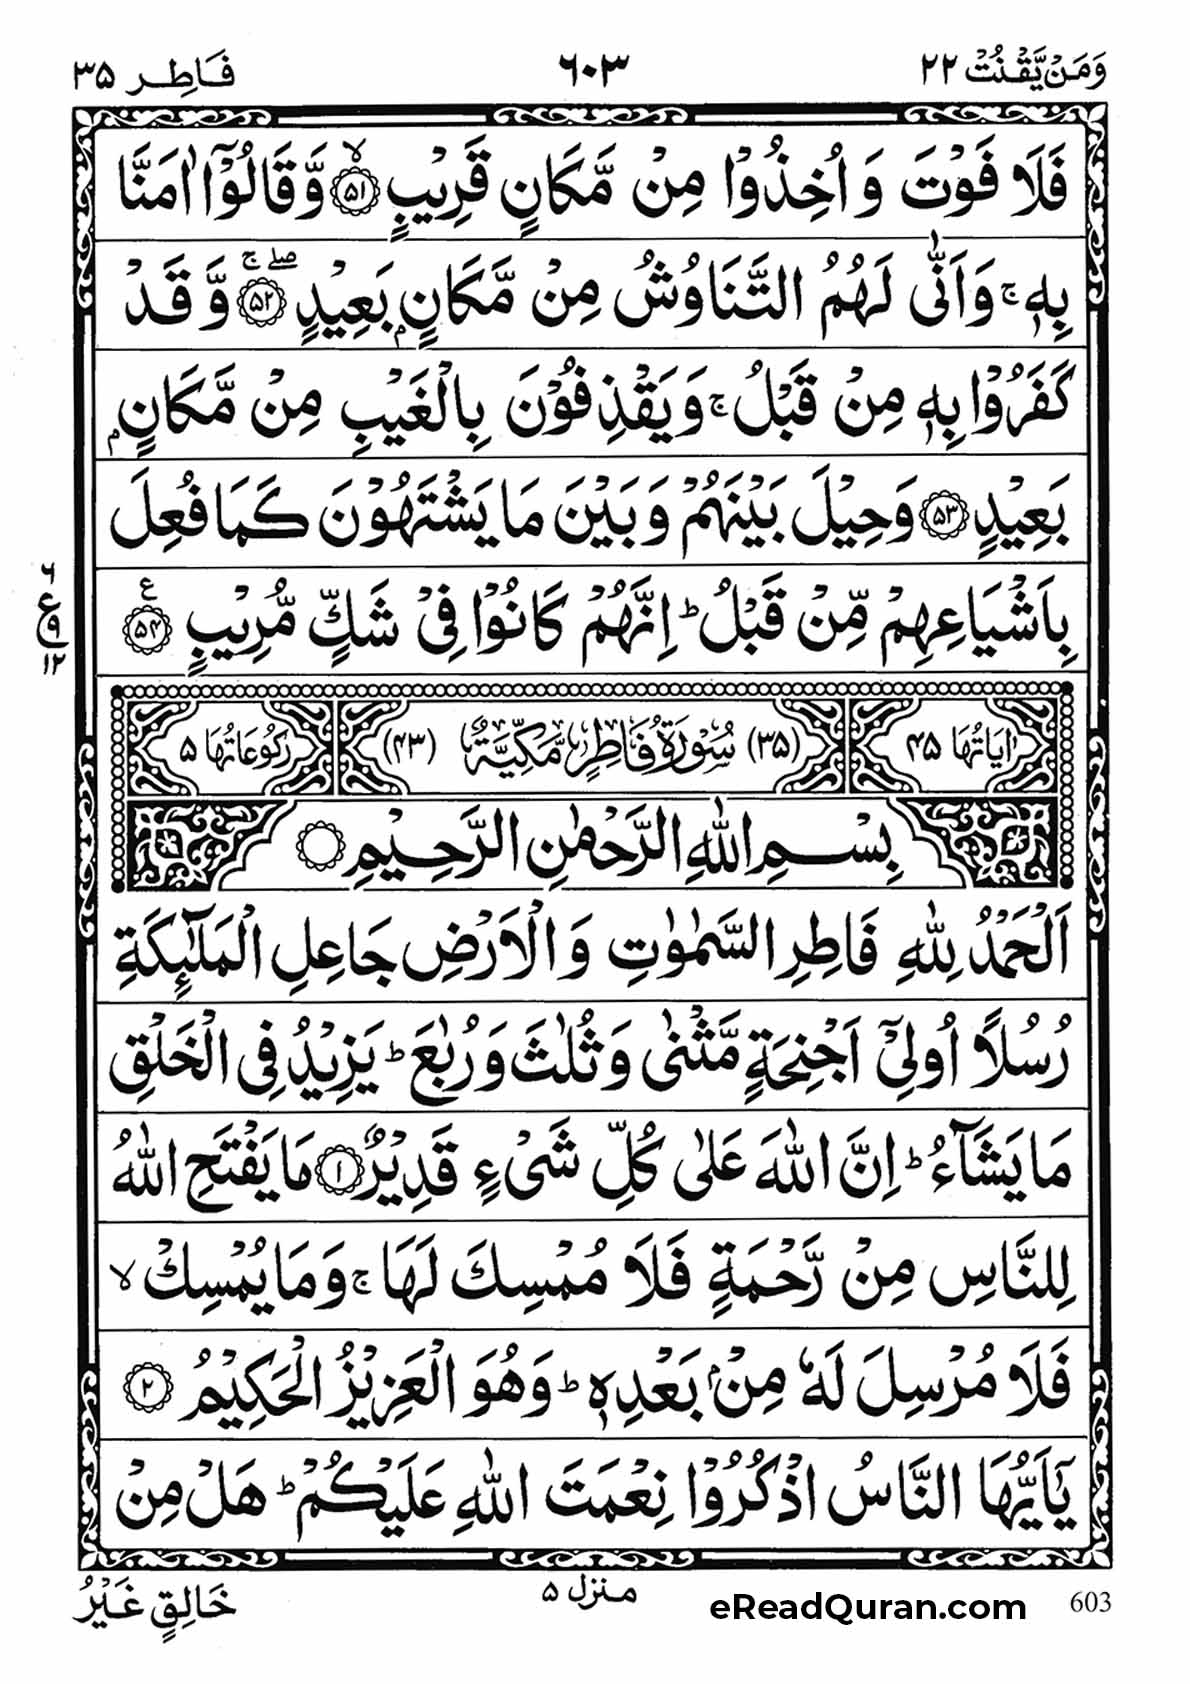 وَمَنْ يَّقْنُتْ ٢٢ ٦٠٣ فَاطِر ٣٥
فَلَا فَوْتَ وَاُخِذُوْا مِنْ مَّكَانٍ قَرِيْبٍ ﴿٥١﴾ۙ وَّقَالُوْٓا اٰمَنَّا
بِهٖ ۚ وَاَنّٰى لَهُمُ التَّنَاوُشُ مِنْ مَّكَانٍۭ بَعِيْدٍ ﴿٥٢﴾ۖۚ وَّقَدْ
كَفَرُوْا بِهٖ مِنْ قَبْلُ ۚ وَيَقْذِفُوْنَ بِالْغَيْبِ مِنْ مَّكَانٍۭ
بَعِيْدٍ ﴿٥٣﴾ وَحِيْلَ بَيْنَهُمْ وَبَيْنَ مَا يَشْتَهُوْنَ كَمَا فُعِلَ
بِاَشْيَاعِهِمْ مِّنْ قَبْلُ ؕ اِنَّهُمْ كَانُوْا فِيْ شَكٍّ مُّرِيْبٍ ﴿٥٤﴾ ع
٦
ع
٩
١٢
اٰيَاتُهَا ٤٥ (٣٥) سُوْرَةُ فَاطِرٍ مَّكِّيَّةٌ (٤٣) رُكُوْعَاتُهَا ٥
بِسْمِ اللّٰهِ الرَّحْمٰنِ الرَّحِيْمِ
اَلْحَمْدُ لِلّٰهِ فَاطِرِ السَّمٰوٰتِ وَالْاَرْضِ جَاعِلِ الْمَلٰٓئِكَةِ
رُسُلًا اُولِيْٓ اَجْنِحَةٍ مَّثْنٰى وَثُلٰثَ وَرُبٰعَ ؕ يَزِيْدُ فِي الْخَلْقِ
مَا يَشَآءُ ؕ اِنَّ اللّٰهَ عَلٰى كُلِّ شَيْءٍ قَدِيْرٌ ﴿١﴾ مَا يَفْتَحِ اللّٰهُ
لِلنَّاسِ مِنْ رَّحْمَةٍ فَلَا مُمْسِكَ لَهَا ۚ وَمَا يُمْسِكْ ۙ
فَلَا مُرْسِلَ لَهٗ مِنْۢ بَعْدِهٖ ؕ وَهُوَ الْعَزِيْزُ الْحَكِيْمُ ﴿٢﴾
يٰٓاَيُّهَا النَّاسُ اذْكُرُوْا نِعْمَتَ اللّٰهِ عَلَيْكُمْ ؕ هَلْ مِنْ
خَالِقٍ غَيْرُ
منزل ٥
eReadQuran.com 603